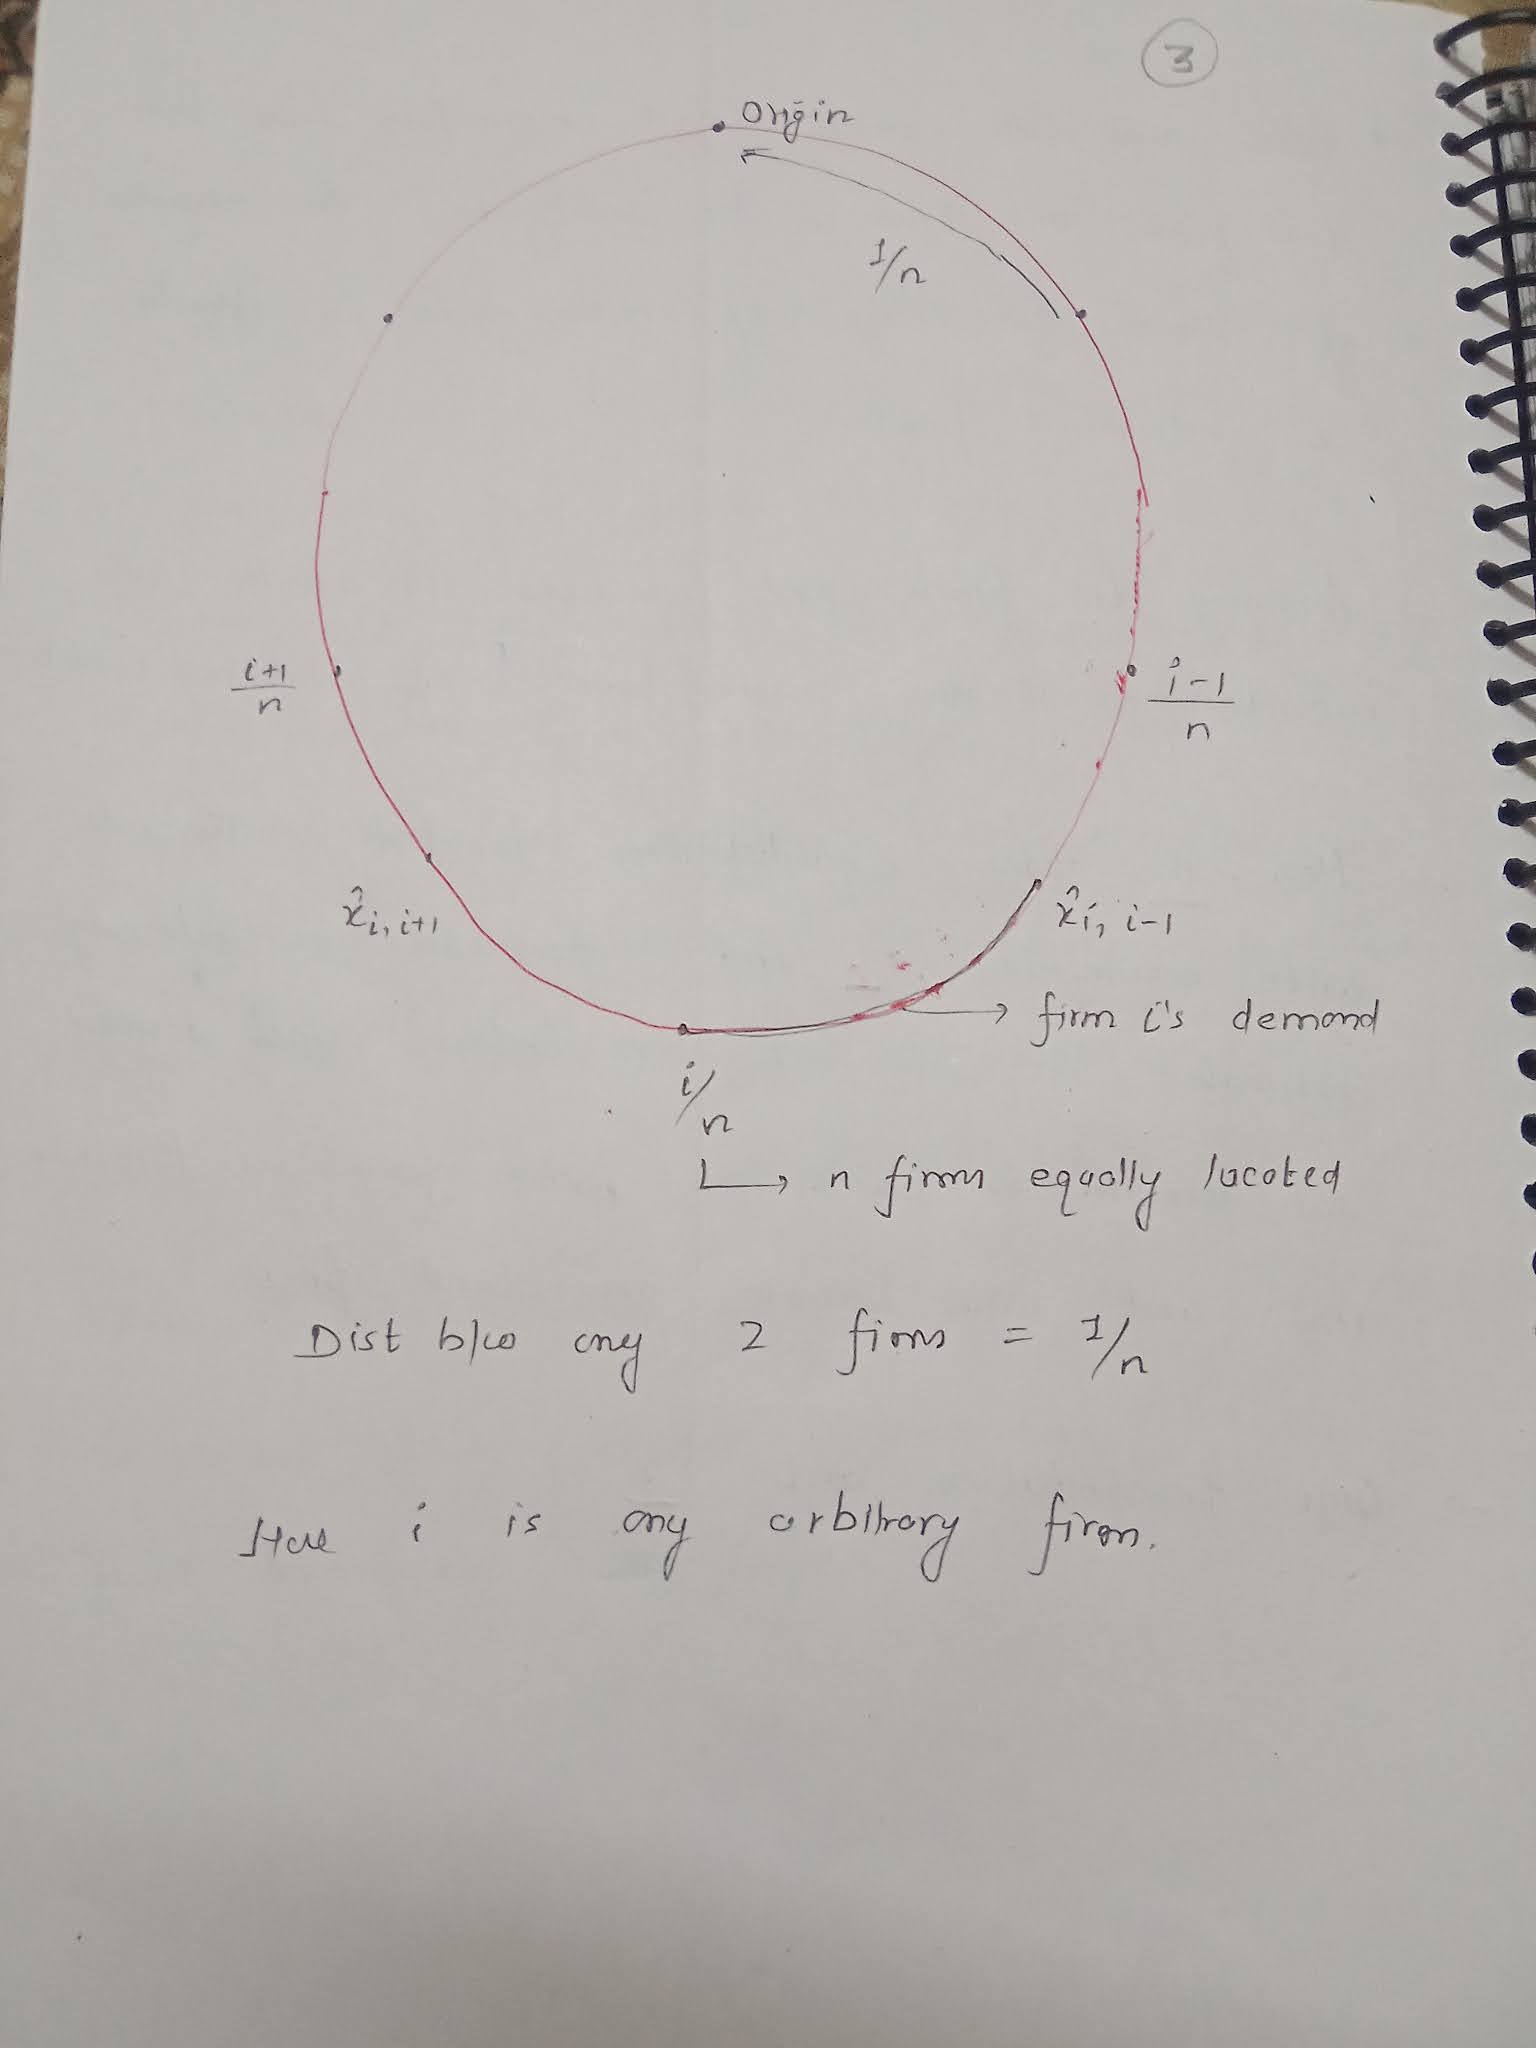 3
Origin
1/n
i+1/n
i-1/n
x̂i,i+1
x̂i,i-1
→ firm i's demand
i/n
↳ n firms equally located
Dist b/w any 2 firms = 1/n
Here i is any arbitrary firm.